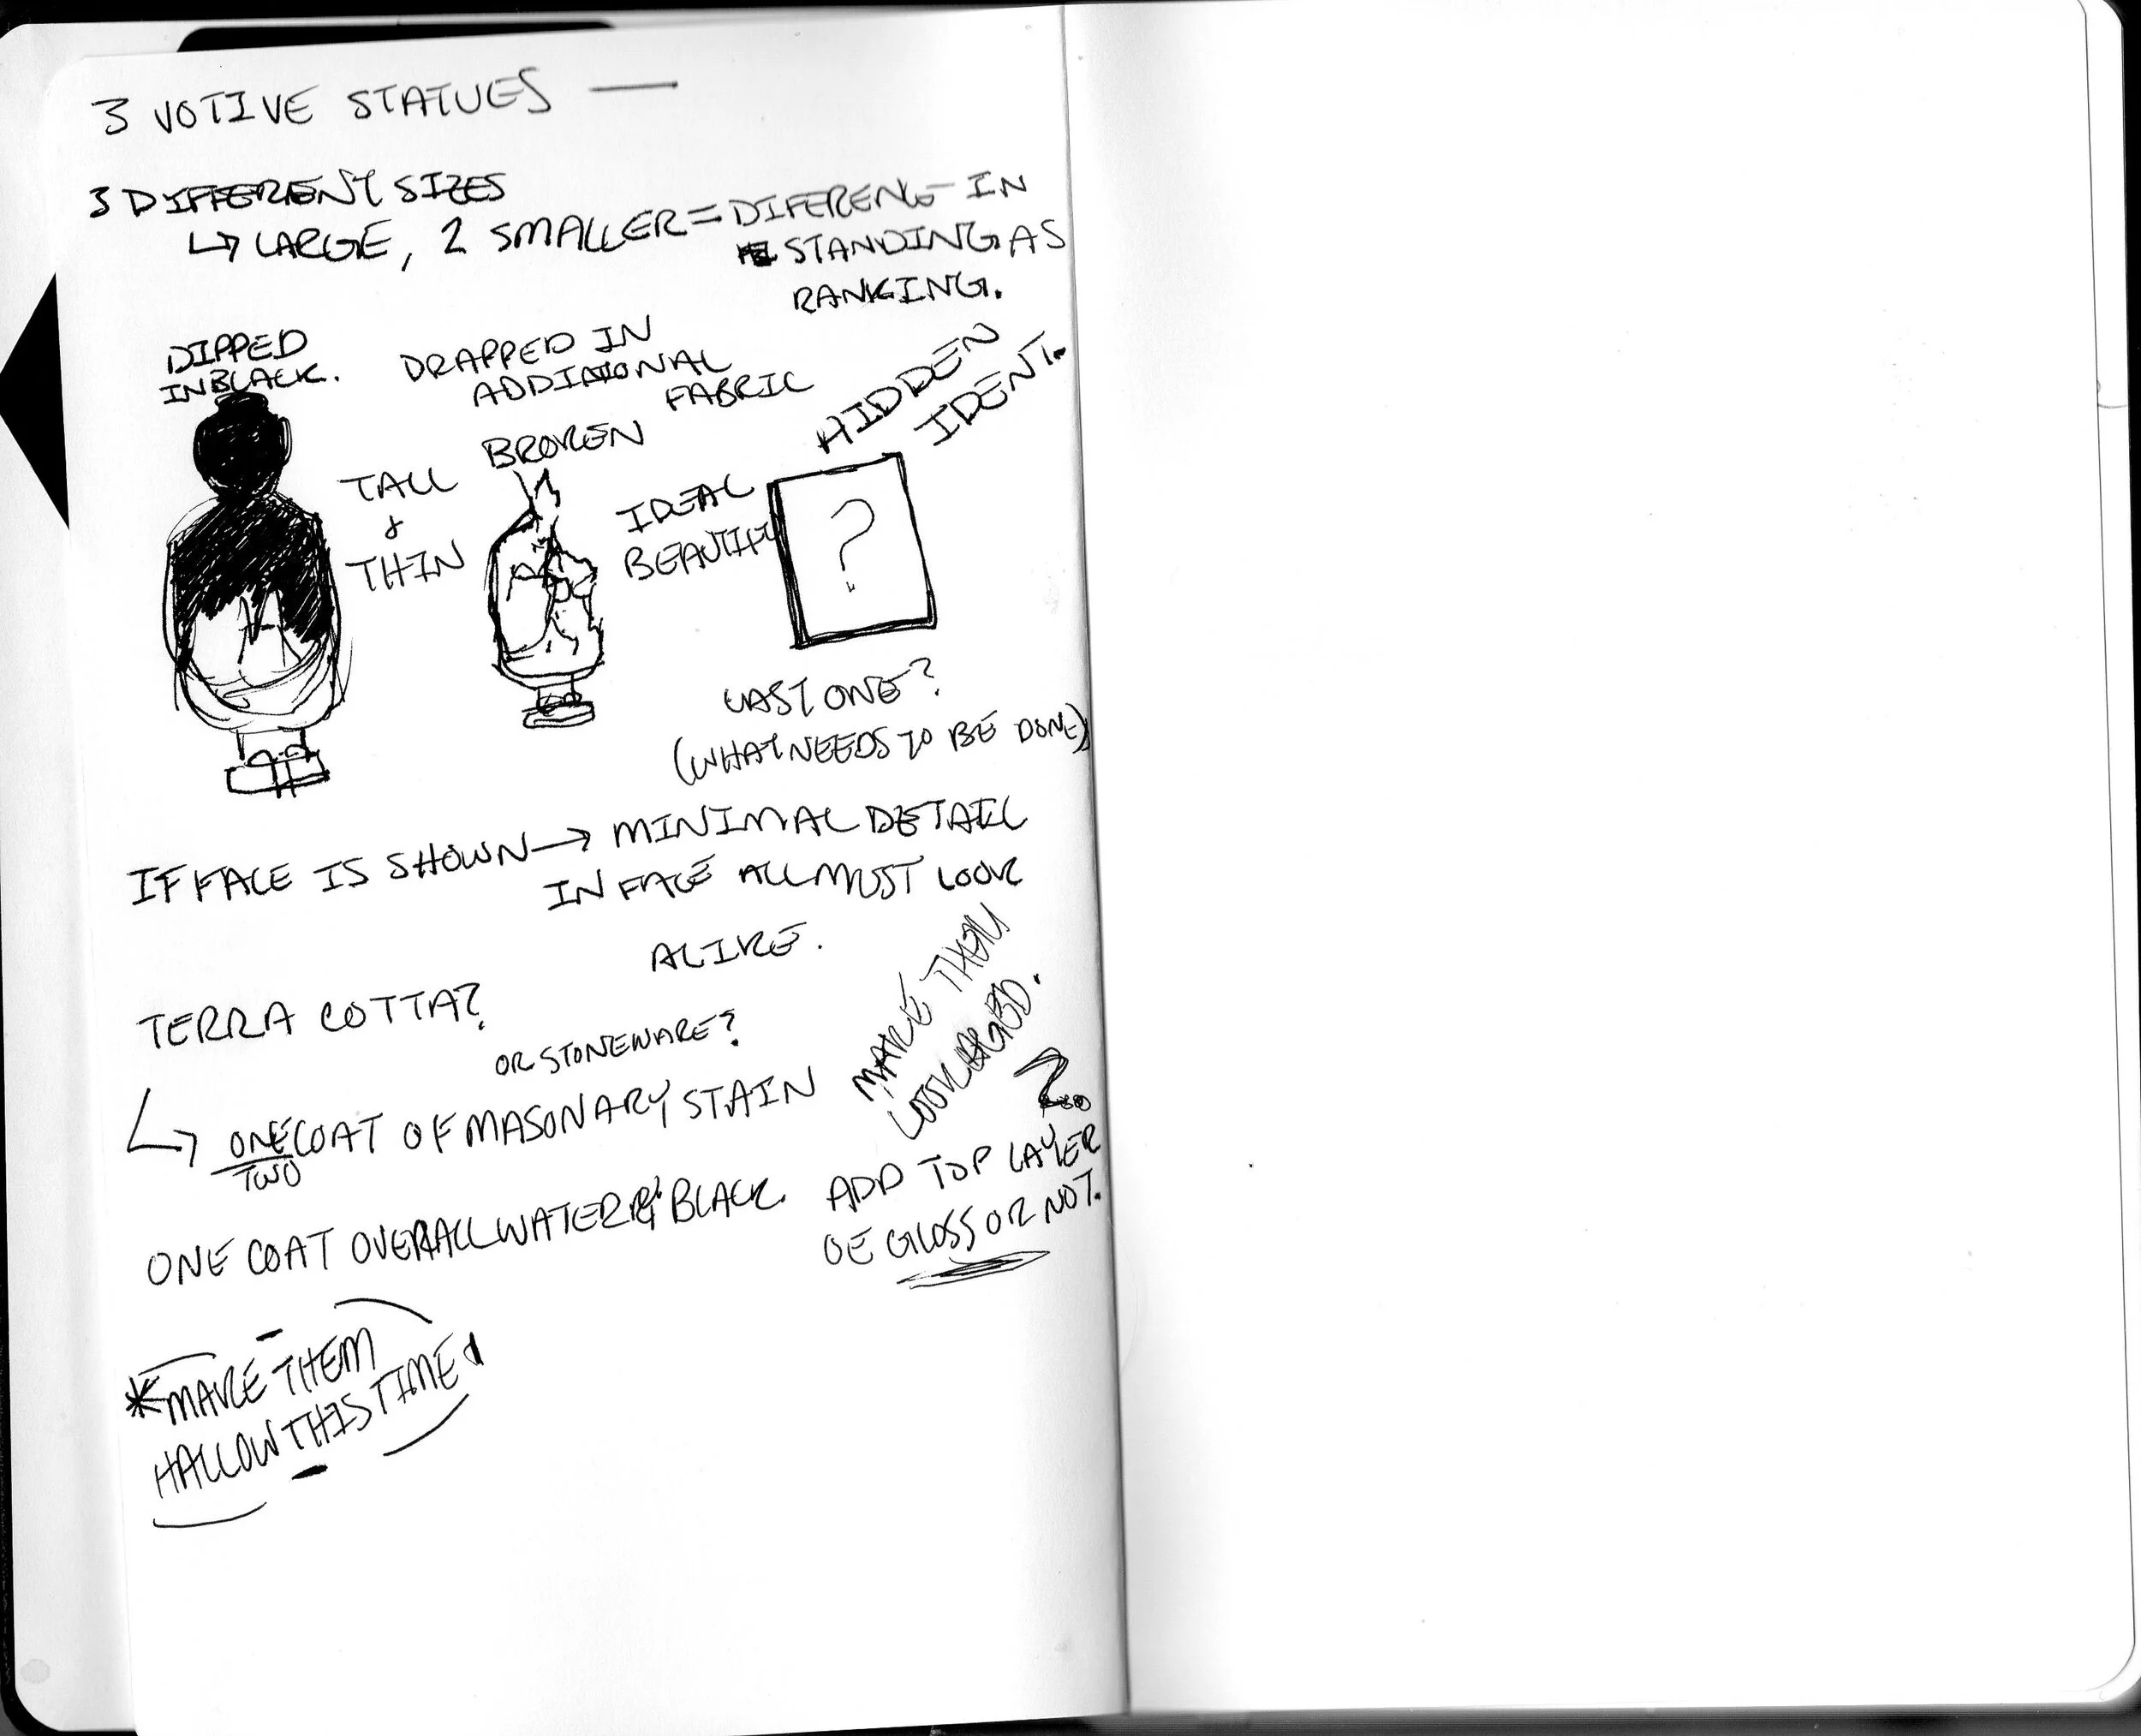 3 VOTIVE STATUES —
3 DIFFERENT SIZES
↳ LARGE, 2 SMALLER = DIFERENG IN
STANDING AS
RANKING.
DIPPED
IN BLACK.
DRAPPED IN
ADDITIONAL
FABRIC
HIDDEN
IDENT.
TALL
&
THIN
BROKEN
IDEAL
BEAUTIFU
?
LAST ONE?
(WHAT NEEDS TO BE DONE)
IF FACE IS SHOWN → MINIMAL DETAIL
IN FACE ALL MUST LOOK
ALIKE.
TERRA COTTA?
OR STONEWARE?
MAKE THEM
LOOK AGED.
↳ ONE COAT OF MASONARY STAIN
TWO
ONE COAT OVERALL WATER & BLACK.
?
ADD TOP LAYER
OF GLOSS OR NOT.
*MAKE THEM
HALLOW THIS TIME